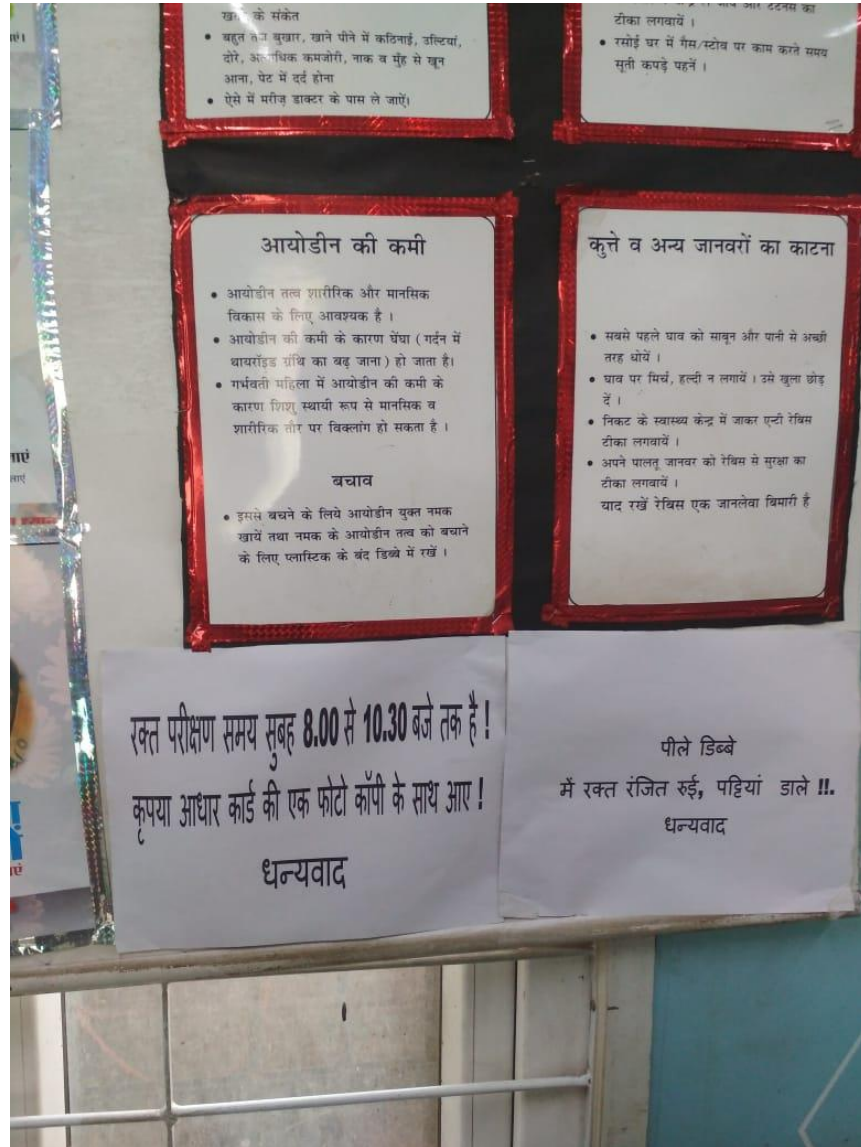 के संकेत
बहुत तेज बुखार, खाने पीने में कठिनाई, उल्टियां,
दोरे, अत्यधिक कमजोरी, नाक व मुँह से खून
आना, पेट में दर्द होना
ऐसे में मरीज़ डाक्टर के पास ले जाऐं।
टीका लगवायें ।
रसोई घर में गैस/स्टोव पर काम करते समय
सूती कपड़े पहनें ।
आयोडीन की कमी
आयोडीन तत्व शारीरिक और मानसिक
विकास के लिए आवश्यक है ।
आयोडीन की कमी के कारण घेंघा (गर्दन में
थायरॉइड ग्रंथि का बढ़ जाना) हो जाता है।
गर्भवती महिला में आयोडीन की कमी के
कारण शिशु स्थायी रूप से मानसिक व
शारीरिक तौर पर विक्लांग हो सकता है ।
बचाव
इससे बचने के लिये आयोडीन युक्त नमक
खायें तथा नमक के आयोडीन तत्व को बचाने
के लिए प्लास्टिक के बंद डिब्बे में रखें ।
कुत्ते व अन्य जानवरों का काटना
सबसे पहले घाव को साबुन और पानी से अच्छी
तरह धोयें ।
घाव पर मिर्च, हल्दी न लगायें । उसे खुला छोड़
दें ।
निकट के स्वास्थ्य केन्द्र में जाकर एन्टी रेबिस
टीका लगवायें ।
अपने पालतू जानवर को रेबिस से सुरक्षा का
टीका लगवायें ।
याद रखें रेबिस एक जानलेवा बिमारी है
रक्त परीक्षण समय सुबह 8.00 से 10.30 बजे तक है !
कृपया आधार कार्ड की एक फोटो कॉपी के साथ आए !
धन्यवाद
पीले डिब्बे
में रक्त रंजित रुई, पट्टियां डाले !!.
धन्यवाद